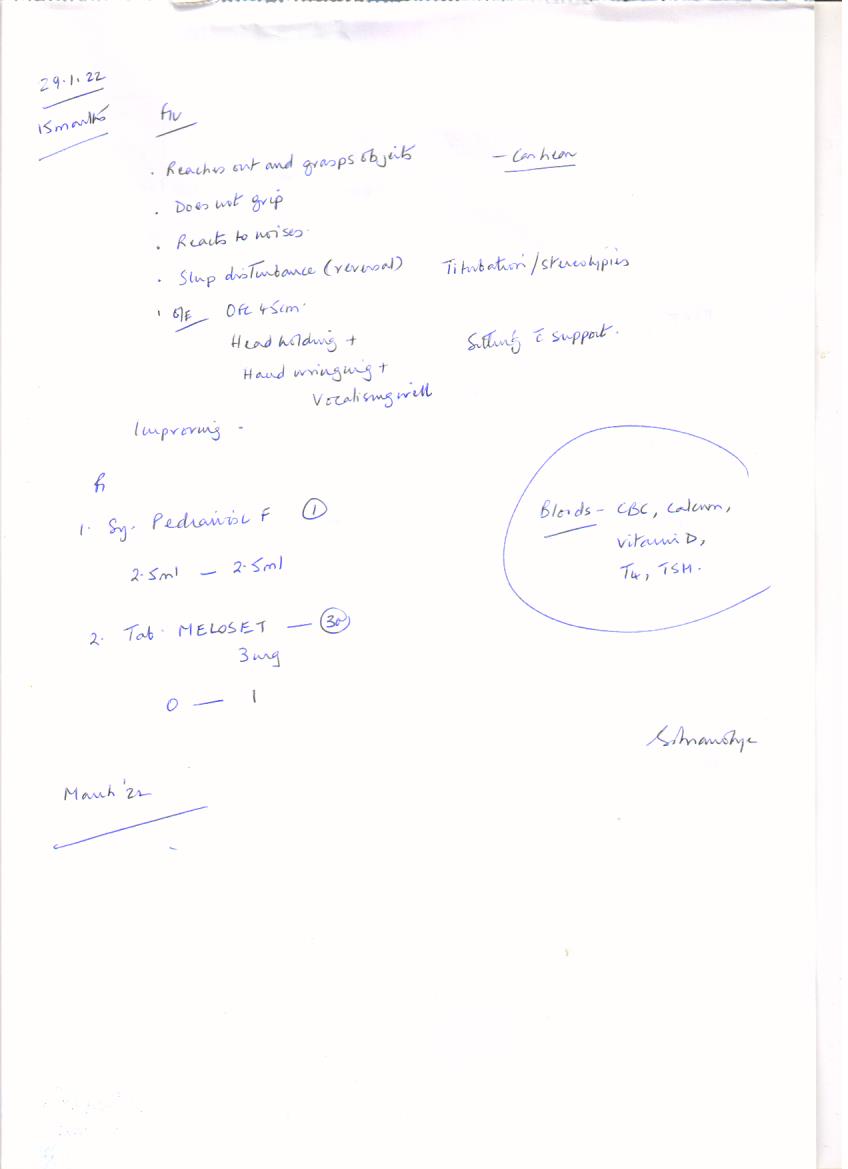 29.1.22
15 months F/U
. Reaches out and grasps objects - Can hear
. Does not grip
. Reacts to noises.
. Sleep disturbance (reversal) Titubation/stereotypies
. O/E OFC 45cm.
Head holding + Sitting c̄ support.
Hand wringing +
Vocalising well
Improving -
Bloods - CBC, Calcium,
Vitamin D,
T4, TSH.
1. Sy. F ①
2.5ml — 2.5ml
2. Tab. MELOSET — (30)
3mg
0 — 1
March '22